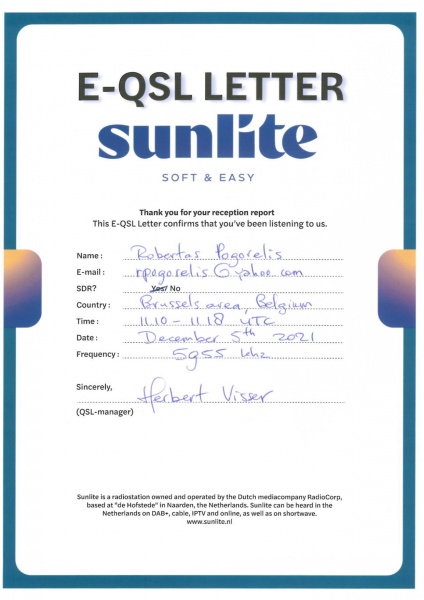 E-QSL LETTER
sunlite
SOFT & EASY
Thank you for your reception report
This E-QSL Letter confirms that you've been listening to us.
Name: Robertas Pogorelis
E-mail: rpogorelis@yahoo.com
SDR? Yes/ No
Country: Brussels area, Belgium
Time: 11.10 - 11.18 UTC
Date: December 5th 2021
Frequency: 5955 khz
Sincerely,
Herbert Visser
(QSL-manager)
Sunlite is a radiostation owned and operated by the Dutch mediacompany RadioCorp,
based at "de Hofstede" in Naarden, the Netherlands. Sunlite can be heard in the
Netherlands on DAB+, cable, IPTV and online, as well as on shortwave.
www.sunlite.nl